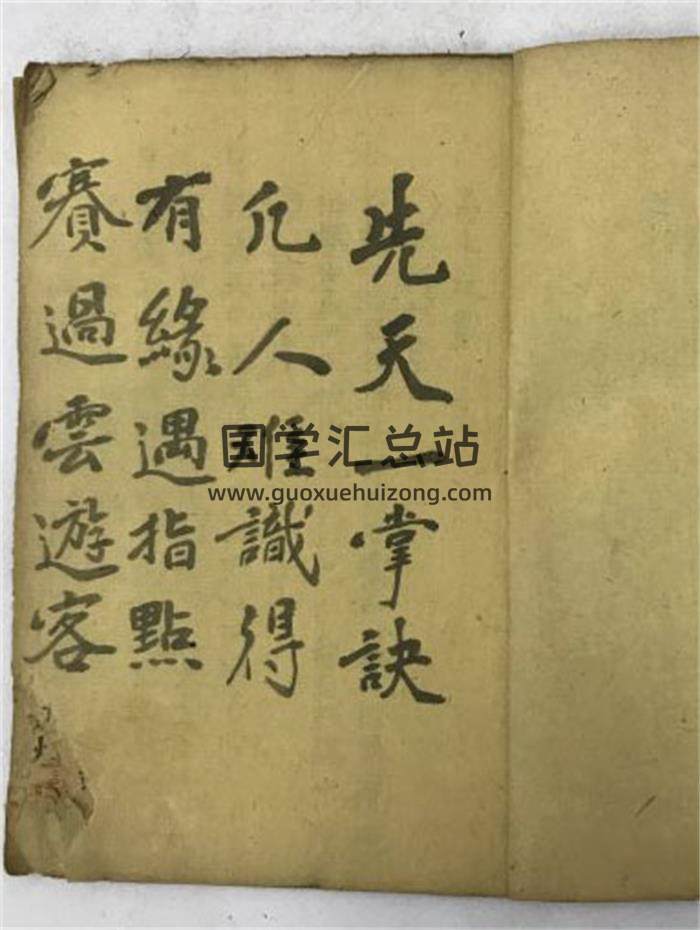 先天一掌訣
凡人難識得
有緣遇指點
賽過雲遊客
国学汇总站
www.guoxuehuizong.com